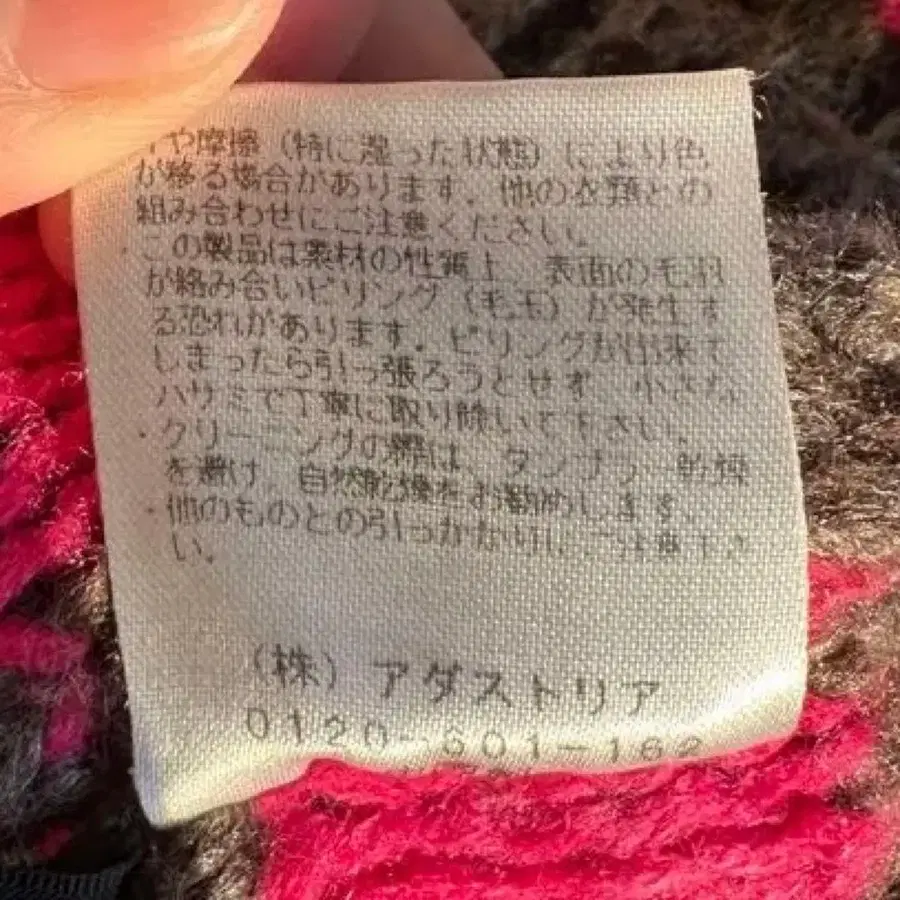 や摩擦（特に湿った状態）により色
が移る場合があります。他の衣類との
組み合わせにご注意ください。
・この製品は素材の性質上 表面の毛羽
が絡み合いピリング（毛玉）が発生す
る恐れがあります。ピリングが出来て
しまったら引っ張ろうとせず 小さな
ハサミで丁寧に取り除いて下さい。
・クリーニングの際は、タンブラー乾燥
を避け、自然乾燥をお勧めします。
・他のものとの引っかかりにご注意下さ
い。
（株）アダストリア
0120-601-162